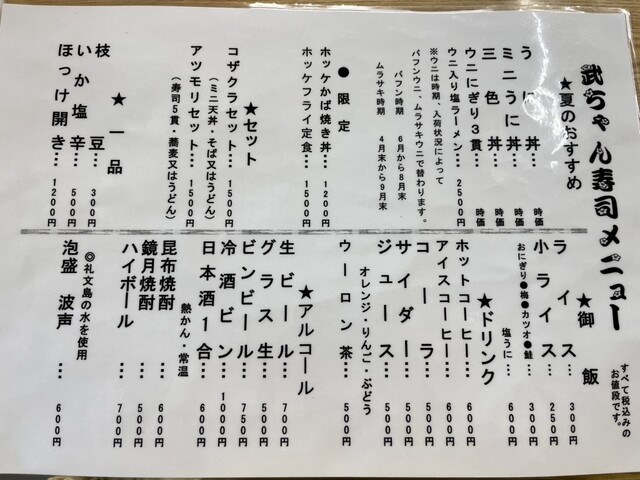 武ちゃん寿司メニュー
すべて税込みの
お値段です。
★夏のおすすめ
うに丼… 時価
ミニうに丼… 時価
三色丼… 時価
ウニにぎり３貫… 時価
ウニ入り塩ラーメン… 2500円
※ウニは時期、入荷状況によって
バフンウニ、ムラサキウニで替わります。
バフン時期 6月から8月末
ムラサキ時期 4月末から9月末
●限定
ホッケかば焼き丼… 1200円
ホッケフライ定食… 1500円
★セット
コザクラセット… 1500円
（ミニ天丼・そば又はうどん）
アツモリセット… 1500円
（寿司5貫・蕎麦又はうどん）
★一品
枝豆… 300円
いか塩辛… 500円
ほっけ開き… 1200円
★御飯
ライス… 300円
小ライス… 250円
おにぎり●梅●カツオ●鮭… 300円
塩うに… 600円
★ドリンク
ホットコーヒー… 600円
アイスコーヒー… 600円
コーラ… 500円
サイダー… 500円
ジュース… 500円
オレンジ・りんご・ぶどう
ウーロン茶… 500円
★アルコール
生ビール… 700円
グラス生… 500円
ビンビール… 750円
冷酒ビン… 1000円
日本酒1合… 600円
熱かん・常温
昆布焼酎… 600円
鏡月焼酎… 500円
ハイボール… 700円
◎礼文島の水を使用
泡盛 波声… 600円